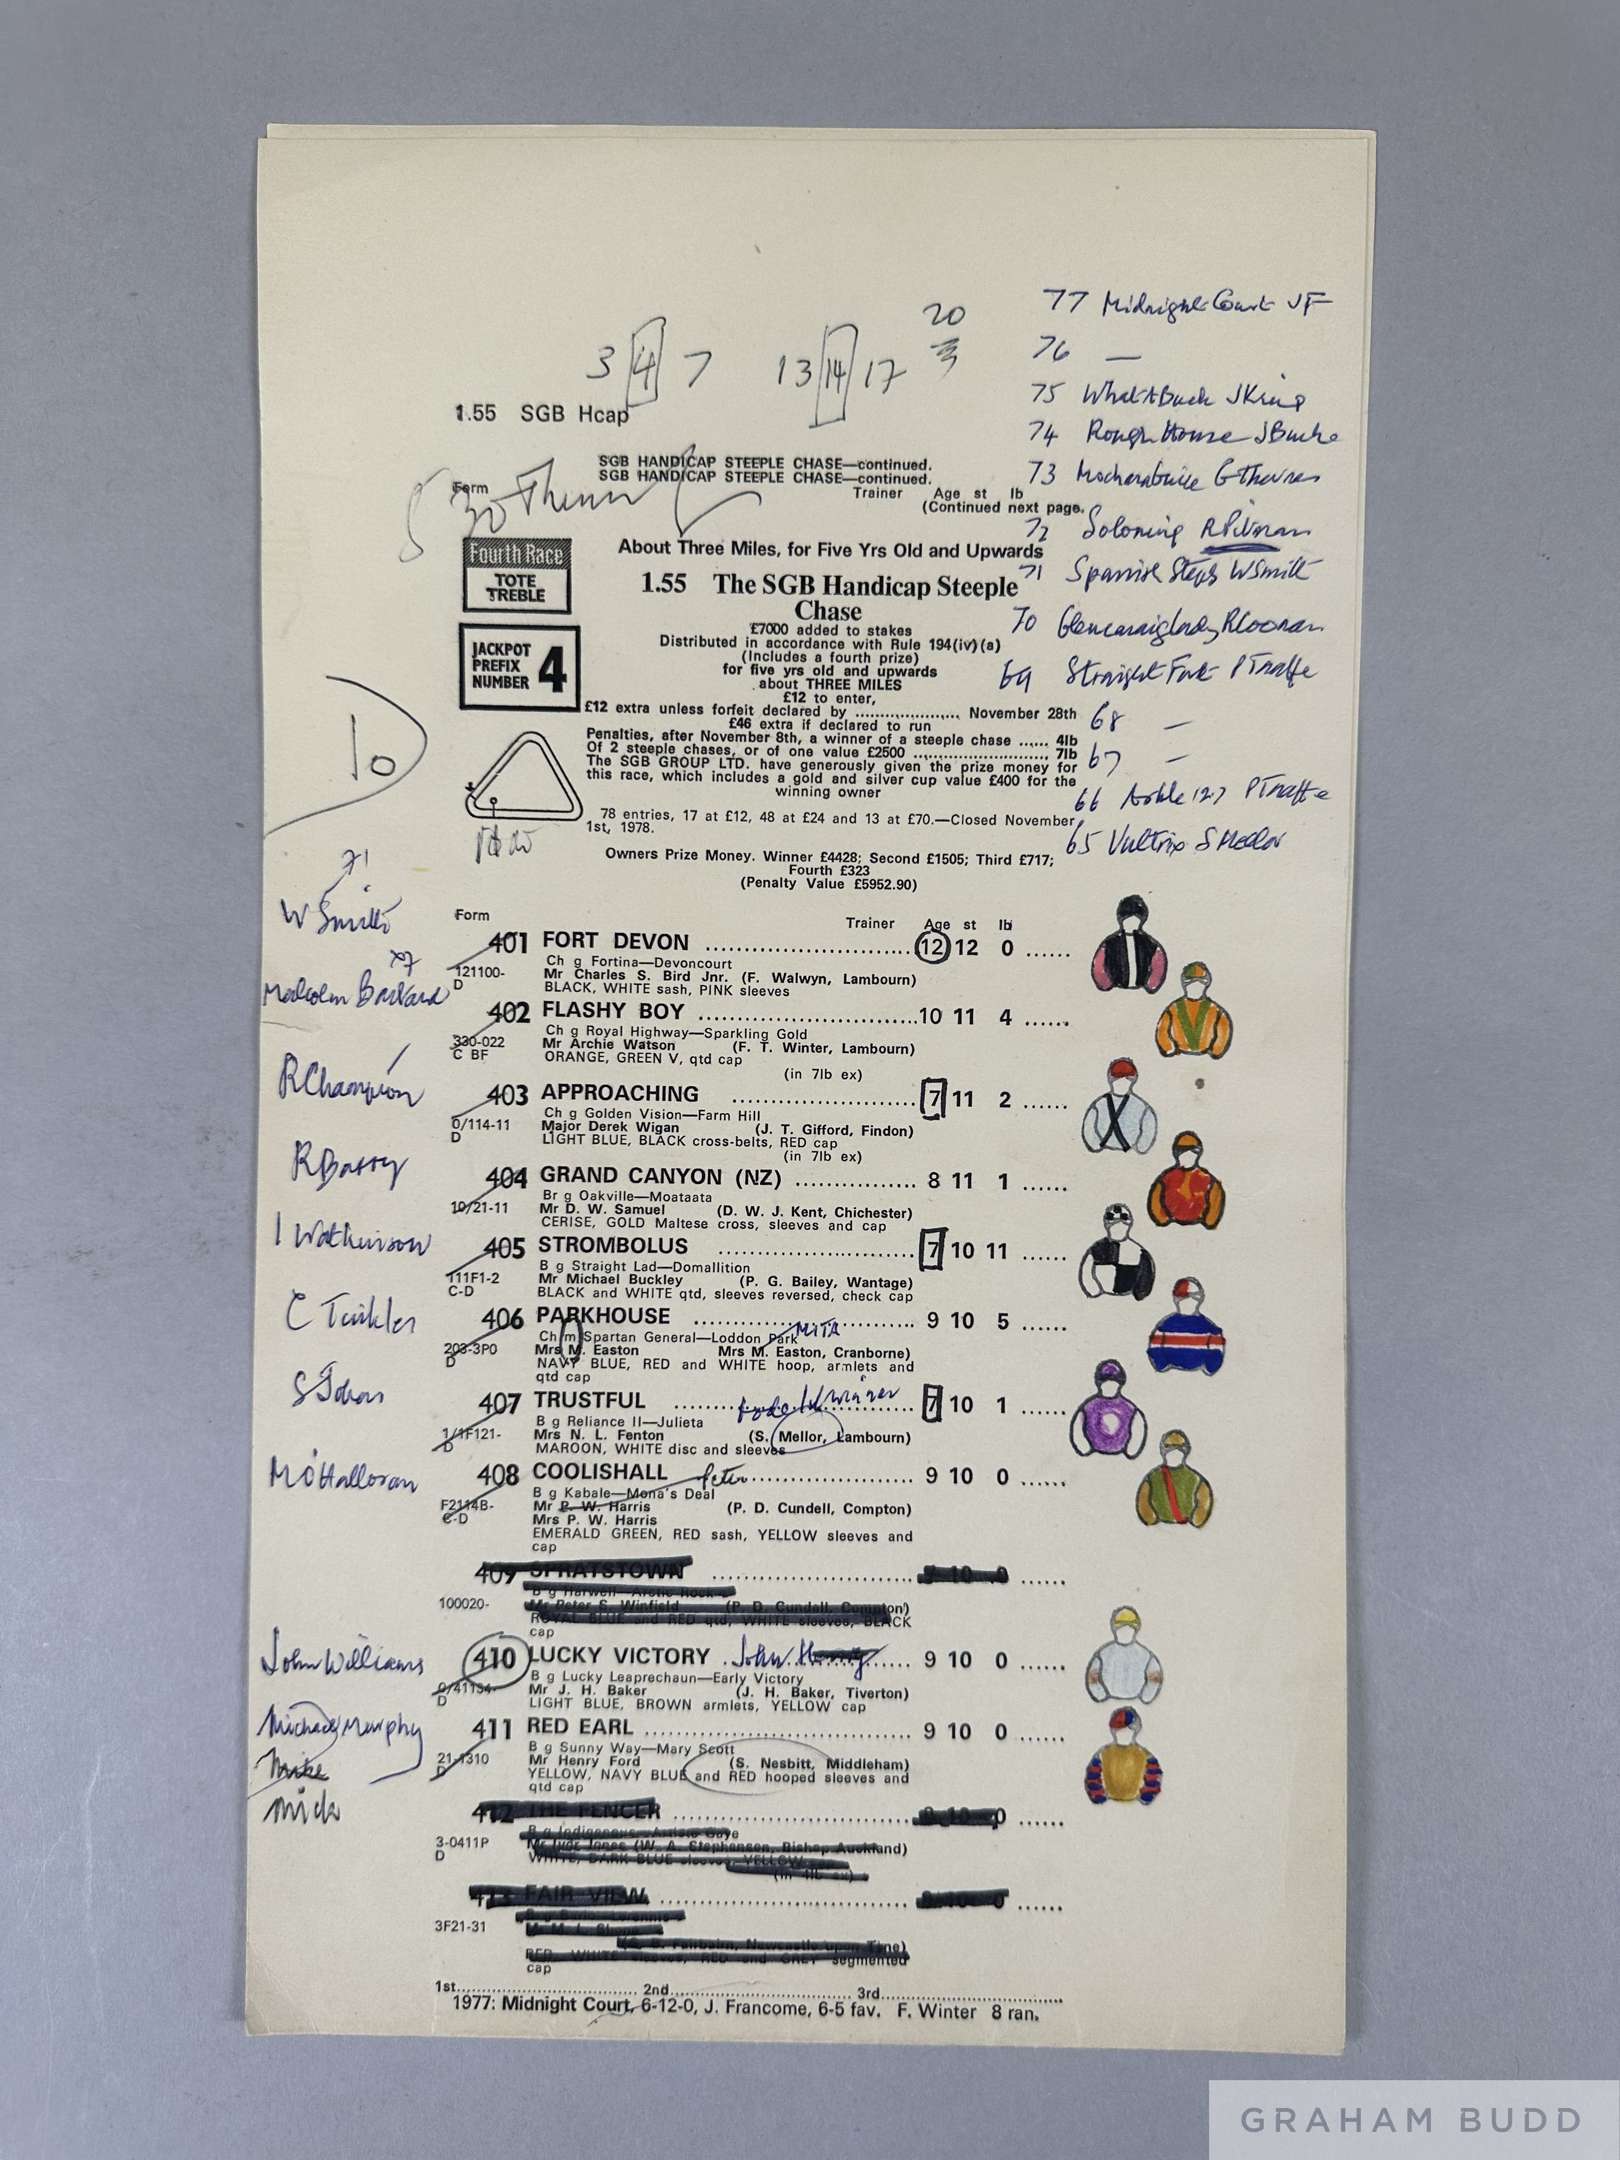 77 Midnight Court JF
76 —
75 What A Buck J King
74 Rough House J Burke
73
72 Soloning R Pitman
71 Spanish Steps W Smith
70
69 Straight Fort P Taaffe
68 —
67 —
66 Arkle 12.7 P Taaffe
65 Vultrix S Mellor
20
3 4 7 13 14 17
1.55 SGB Hcap
SGB HANDICAP STEEPLE CHASE—continued.
SGB HANDICAP STEEPLE CHASE—continued.
Form Trainer Age st lb
(Continued next page.
30
Fourth Race
TOTE
TREBLE
JACKPOT
PREFIX
NUMBER 4
10
About Three Miles, for Five Yrs Old and Upwards
1.55 The SGB Handicap Steeple
Chase
£7000 added to stakes
Distributed in accordance with Rule 194(iv)(a)
(Includes a fourth prize)
for five yrs old and upwards
about THREE MILES
£12 to enter,
£12 extra unless forfeit declared by .................... November 28th
£46 extra if declared to run
Penalties, after November 8th, a winner of a steeple chase ...... 4lb
Of 2 steeple chases, or of one value £2500 ............................ 7lb
The SGB GROUP LTD. have generously given the prize money for
this race, which includes a gold and silver cup value £400 for the
winning owner
78 entries, 17 at £12, 48 at £24 and 13 at £70.—Closed November
1st, 1978.
Owners Prize Money. Winner £4428; Second £1505; Third £717;
Fourth £323
(Penalty Value £5952.90)
71
W Smith
Form Trainer Age st lb
401 FORT DEVON ........................................ 12 12 0 ......
121100- Ch g Fortina—Devoncourt
D Mr Charles S. Bird Jnr. (F. Walwyn, Lambourn)
BLACK, WHITE sash, PINK sleeves
Malcolm Bastard
402 FLASHY BOY ........................................ 10 11 4 ......
Ch g Royal Highway—Sparkling Gold
330-022 Mr Archie Watson (F. T. Winter, Lambourn)
C BF ORANGE, GREEN V, qtd cap
(in 7lb ex)
R Champion
403 APPROACHING ........................................ 7 11 2 ......
Ch g Golden Vision—Farm Hill
0/114-11 Major Derek Wigan (J. T. Gifford, Findon)
D LIGHT BLUE, BLACK cross-belts, RED cap
(in 7lb ex)
R Barry
404 GRAND CANYON (NZ) ................ 8 11 1 ......
Br g Oakville—Moataata
10/21-11 Mr D. W. Samuel (D. W. J. Kent, Chichester)
CERISE, GOLD Maltese cross, sleeves and cap
I Watkinson
405 STROMBOLUS ........................................ 7 10 11 ......
B g Straight Lad—Domallition
111F1-2 Mr Michael Buckley (P. G. Bailey, Wantage)
C-D BLACK and WHITE qtd, sleeves reversed, check cap
C Tinkler
406 PARKHOUSE ........................................ 9 10 5 ......
Ch m Spartan General—Loddon Park MITA
203-3P0 Mrs M. Easton Mrs M. Easton, Cranborne)
D NAVY BLUE, RED and WHITE hoop, armlets and
qtd cap
S Jobar
407 TRUSTFUL ........................................ 7 10 1 ......
rode W winner
B g Reliance II—Julieta
1/1F121- Mrs N. L. Fenton (S. Mellor, Lambourn)
D MAROON, WHITE disc and sleeves
M O'Halloran
408 COOLISHALL Peter ........................ 9 10 0 ......
B g Kabale—Mona's Deal
F2114B- Mr P. W. Harris (P. D. Cundell, Compton)
C-D Mrs P. W. Harris
EMERALD GREEN, RED sash, YELLOW sleeves and
cap
409 SPRATSTOWN ........................................ 10 0 ......
B g Harwell—Arctic Rock
100020- Mr Peter S. Winfield (P. D. Cundell, Compton)
ROYAL BLUE and RED qtd, WHITE sleeves, BLACK
cap
John Williams
410 LUCKY VICTORY John Henry ...... 9 10 0 ......
B g Lucky Leaprechaun—Early Victory
0/41134- Mr J. H. Baker (J. H. Baker, Tiverton)
D LIGHT BLUE, BROWN armlets, YELLOW cap
Michael Murphy
Mike
Mick
411 RED EARL ........................................ 9 10 0 ......
B g Sunny Way—Mary Scott
21-1310 Mr Henry Ford (S. Nesbitt, Middleham)
D YELLOW, NAVY BLUE and RED hooped sleeves and
qtd cap
412 THE FENCER ........................................ 10 0 ......
B g Indigenous
3-0411P (W. A. Stephenson, Bishop Auckland)
D WHITE, DARK BLUE sleeves, YELLOW
413 FAIR VIEW ........................................ 10 0 ......
3F21-31
Newcastle upon Tyne)
RED, WHITE sleeves, RED and GREY segmented
cap
1st.................................. 2nd.................................. 3rd..................................
1977: Midnight Court, 6-12-0, J. Francome, 6-5 fav. F. Winter 8 ran.
GRAHAM BUDD